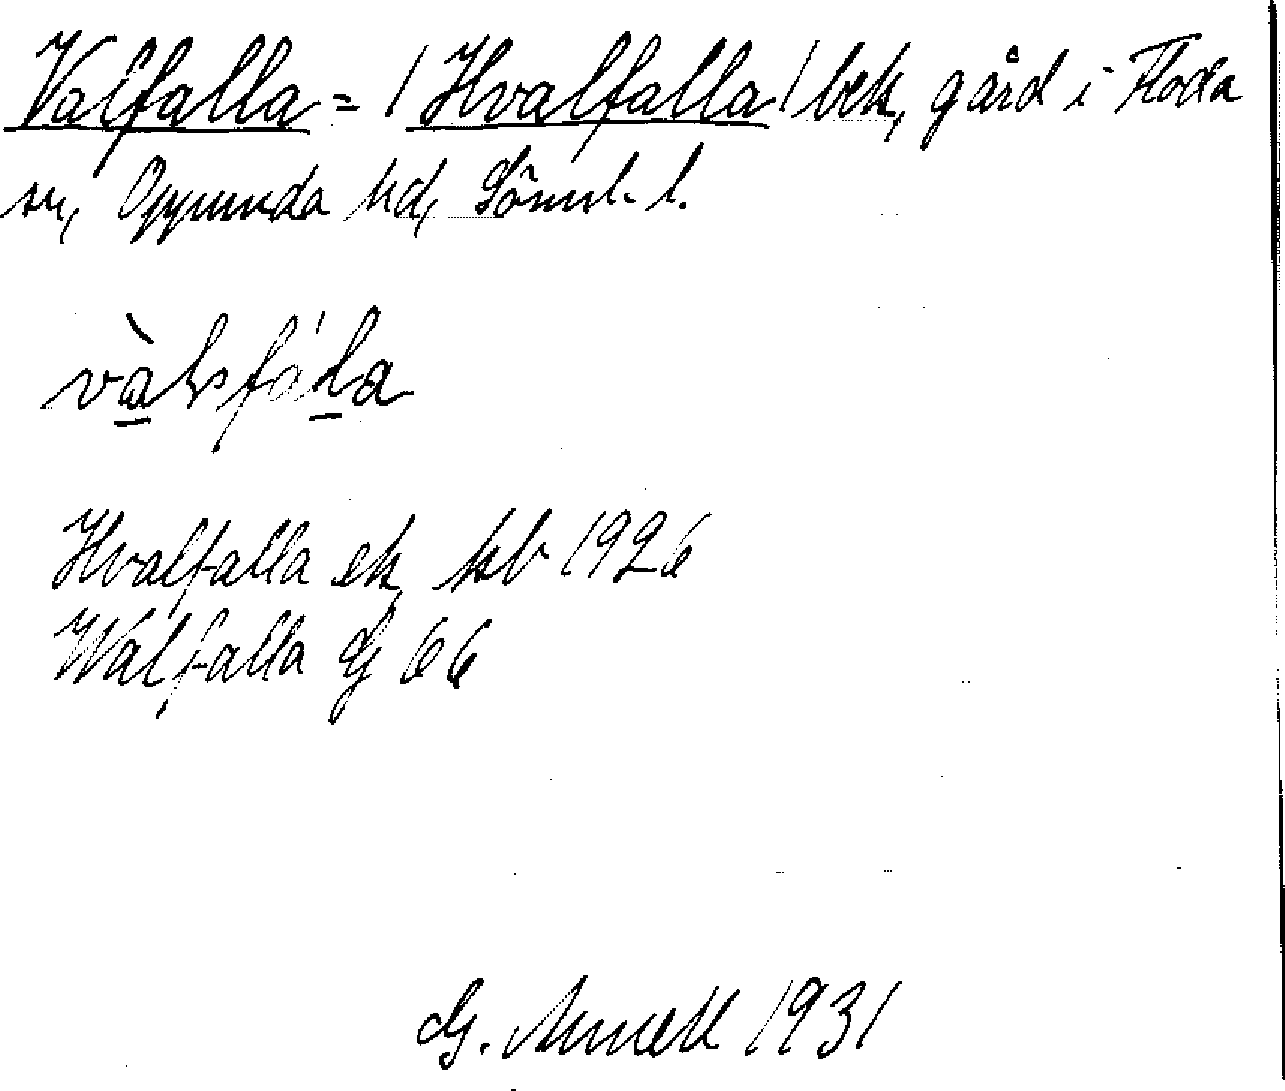 Valfalla = / Hvalfalla / bek, gård i Floda
sn, Oppunda hd, Söml. l.
Hvalfalla ek, kb 1926
Walfalla G 66
G. 1931